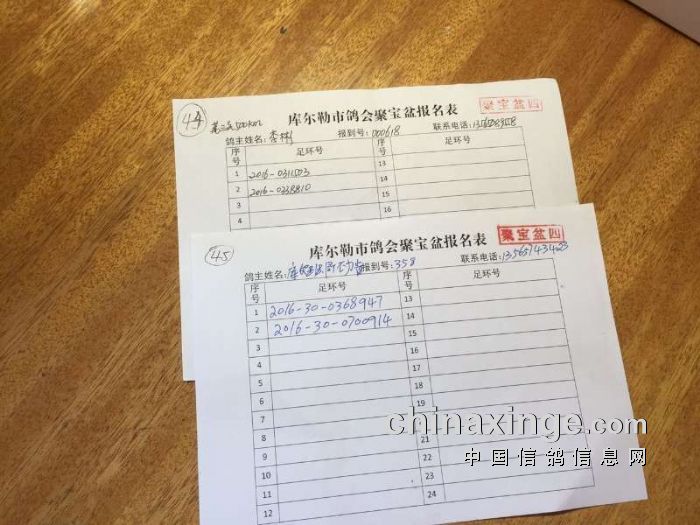 44 第三关500km
库尔勒市鸽会聚宝盆报名表 聚宝盆四
鸽主姓名: 李彬 报到号: 000618 联系电话:
序号 足环号 序号 足环号
1 2016-0311503 13
2 2016-0238810 14
3 15
4 16
45
库尔勒市鸽会聚宝盆报名表 聚宝盆四
鸽主姓名: 报到号: 358 联系电话:
序号 足环号 序号 足环号
1 2016-30-0368947 13
2 2016-30-0700914 14
3 15
4 16
5 17
6 18
7 19
8
9 21
10 22
11 23
12 24
chinaxinge.com
中国信鸽信息网